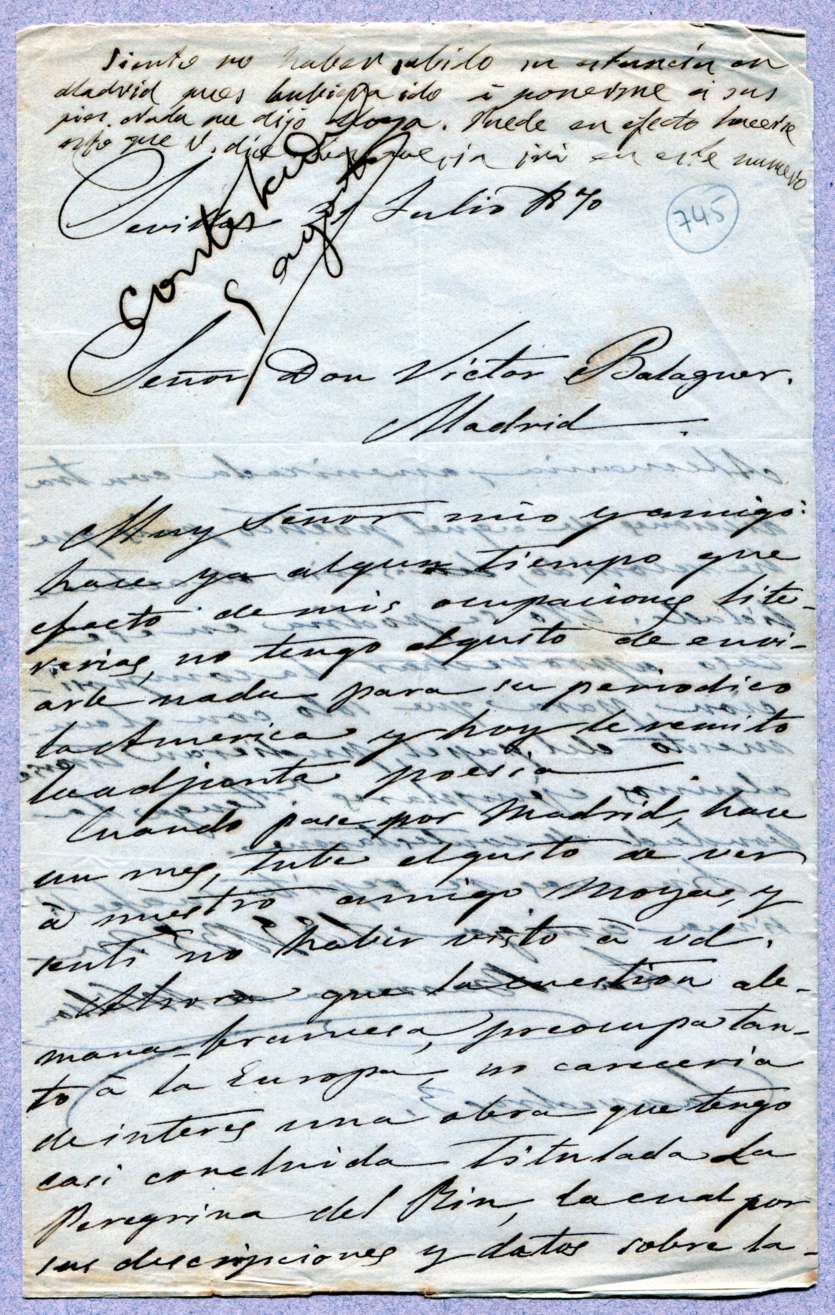 Siento no haber sabido su estancia en
Madrid pues hubiera ido á ponerme á sus
pies. Nada me dijo Moya. Puede en efecto hacerse
esto que V. dice irá en este numero
Contestada
5 agosto
Sevilla 31 Julio 1870
745
Señor Don Victor Balaguer.
Madrid
Muy Señor mio y amigo:
hace ya algun tiempo que
efecto de mis ocupaciones lite-
rarias, no tengo el gusto de envi-
arle nada para su periodico
la America y hoy le remito
la adjunta poesia
Cuando pasé por Madrid, hace
un mes, tube el gusto de ver
á nuestro amigo Moya, y
senti no haber visto á vd.
Ahora que la cuestion ale-
mana-francesa, preocupa tan-
to á la Europa, no careceria
de interes una obra que tengo
casi concluida titulada La
Peregrina del Rin, la cual por
sus descripciones y datos sobre la